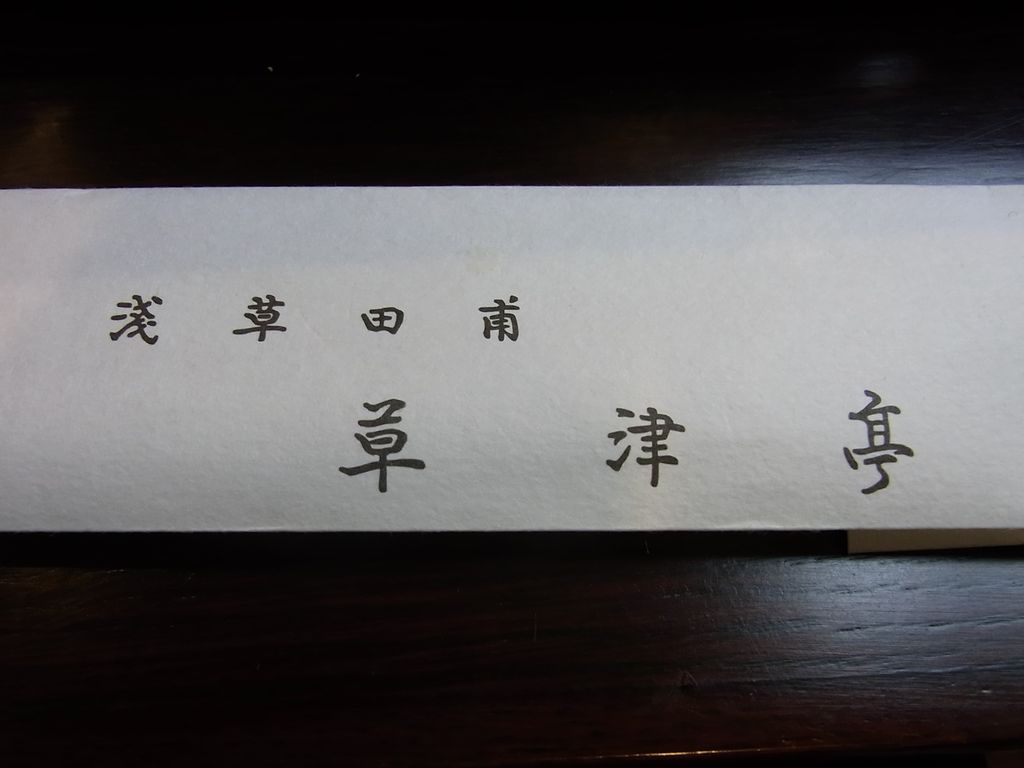 淺草田甫
草津亭